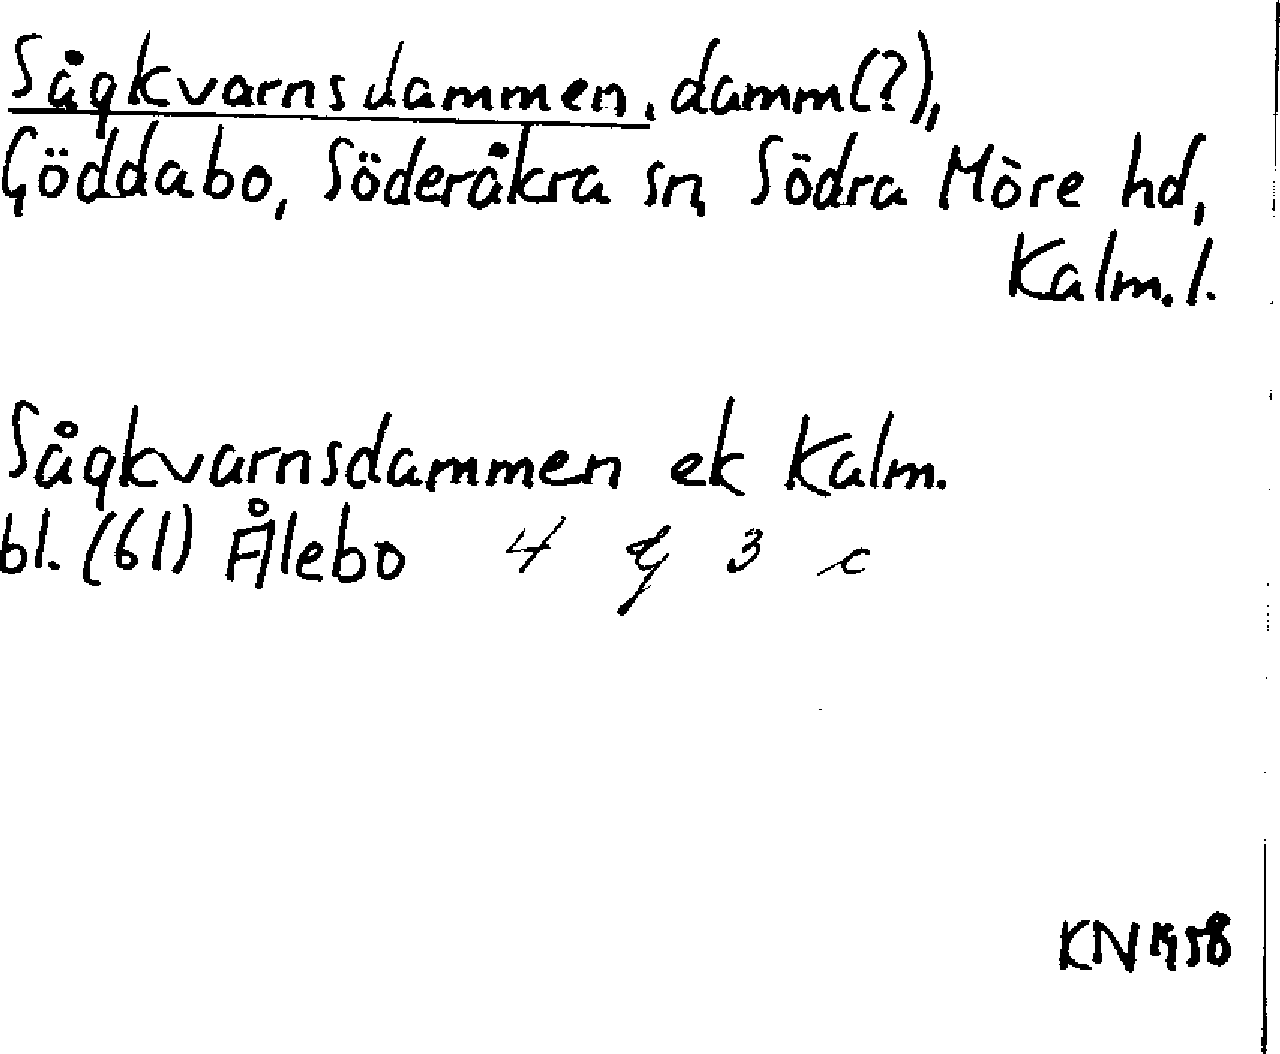 Sågkvarnsdammen, damm(?),
Göddabo, Söderåkra sn, Södra Möre hd,
Kalm. l.
Sågkvarnsdammen ek Kalm.
bl. (61) Ålebo 4 g 3 c
KN 1958